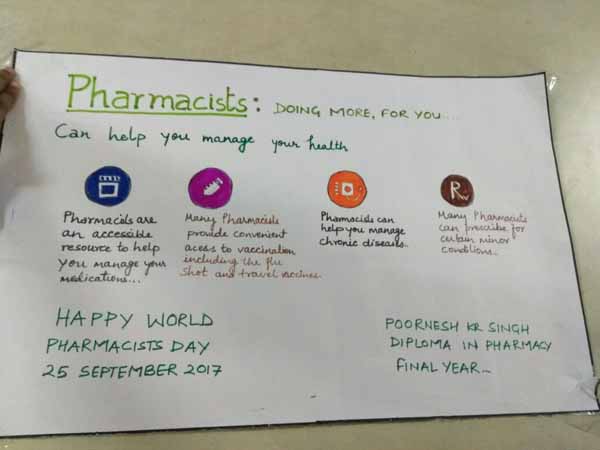 Pharmacists: DOING MORE, FOR YOU....
Can help you manage your health
Pharmacists are
an accessible
resource to help
you manage your
medications...
Many Pharmacists
provide convenient
acess to vaccination
including the flu
shot and travel vaccines
Pharmacists can
help you manage
chronic diseases..
R
Many Pharmacists
can prescribe for
certain minor
conditions..
HAPPY WORLD
PHARMACISTS DAY
25 SEPTEMBER 2017
POORNESH KR SINGH
DIPLOMA IN PHARMACY
FINAL YEAR..